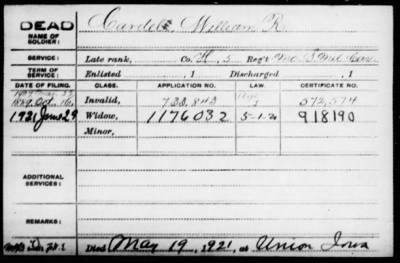 DEAD
NAME OF SOLDIER: William R.
SERVICE: Late rank, Co. H, 5 Reg't Mo. S. Mil. Cav.
TERM OF SERVICE: Enlisted , 1 Discharged , 1
DATE OF FILING. CLASS. APPLICATION NO. LAW. CERTIFICATE NO.
Oct. 16, Invalid, 572,574
1921 June 29 Widow, 1176032 5-1-20 918190
Minor,
ADDITIONAL SERVICES:
REMARKS:
Died May 19, 1921, at Union Iowa